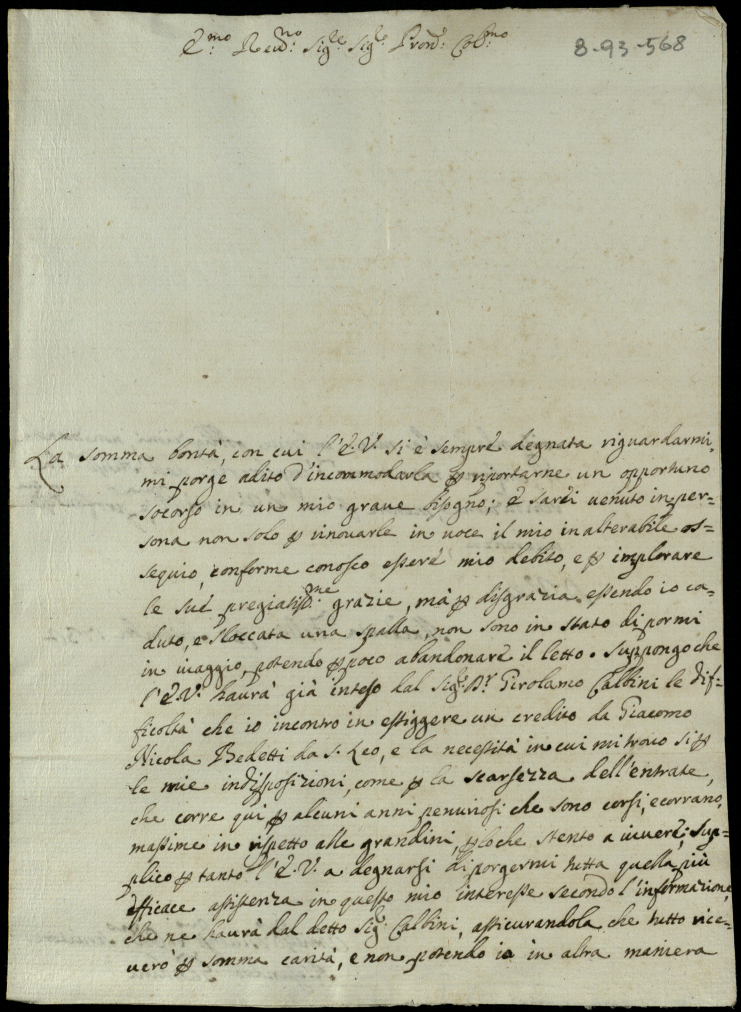 E.mo Reud.mo Sig.re Sig.re Pron.e Col.mo
8-93-568
La somma bontà, con cui l'E.V. si è sempre degnata riguardarmi,
mi porge adito d'incommodarla p riportarne un opportuno
socorso in un mio graue bisogno; e sarei uenuto in per=
sona non solo p rinouarle in uoce il mio inalterabile os=
sequio, conforme conosco essere mio debito, e p implorare
le sue pregiatiss.me grazie, mà p disgrazia essendo io ca=
duto, e sloccata una spalla, non sono in stato di pormi
in uiaggio, potendo p poco abandonare il letto. Suppongo che
l'E.V. haurà già inteso dal Sig.r D.r Girolamo Calbini le dif=
ficoltà che io incontro in essiggere un credito da Giacomo
Nicola Bedetti da S. Leo, e la necessità in cui mi trouo si p
le mie indisposizioni, come p la scarsezza dell'entrate,
che corre qui p alcuni anni penuriosi che sono corsi, e corrano,
massime in rispetto alle grandini, p loche stento a uiuere; sup=
plico p tanto l'E.V. a degnarsi di porgermi tutta quella più
efficace assistenza in questo mio interesse secondo l'informazione,
che ne haurà dal detto Sig.r Calbini, assicurandola, che tutto rice=
uerò p somma carità, e non potendo io in altra maniera